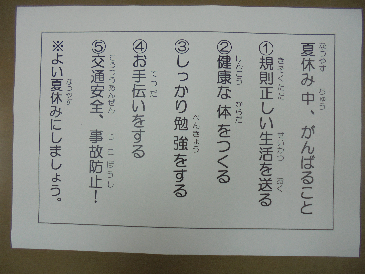 夏休み中、がんばること
①規則正しい生活を送る
②健康な体をつくる
③しっかり勉強をする
④お手伝いをする
⑤交通安全、事故防止！
※よい夏休みにしましょう。